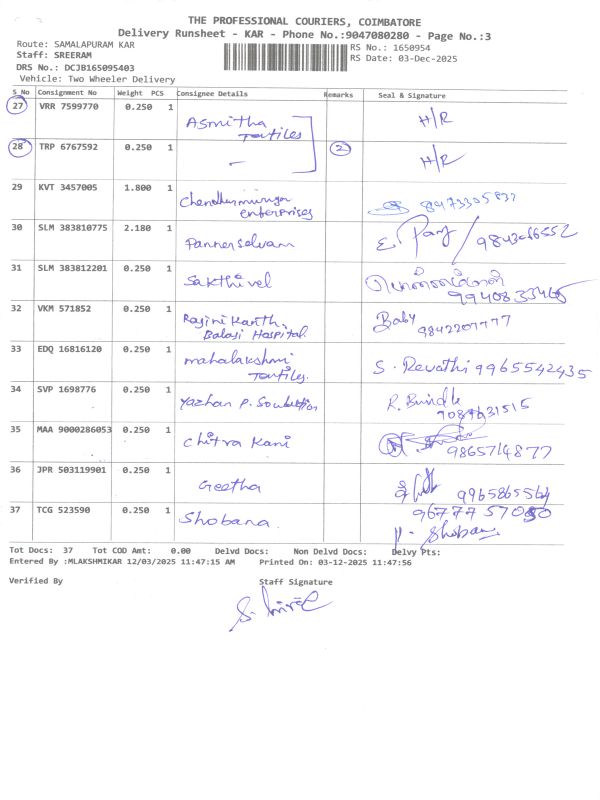 THE PROFESSIONAL COURIERS, COIMBATORE
Delivery Runsheet - KAR - Phone No.:9047080280 - Page No.:3
Route: SAMALAPURAM KAR
RS No.: 1650954
Staff: SREERAM
RS Date: 03-Dec-2025
DRS No.: DCJB165095403
Vehicle: Two Wheeler Delivery
S No Consignment No Weight PCS Consignee Details Remarks Seal & Signature
27 VRR 7599770 0.250 1 Asmitha Textiles H/R
28 TRP 6767592 0.250 1 - 2 H/R
29 KVT 3457005 1.800 1 enterprises
30 SLM 383810775 2.180 1 Panner selvam
31 SLM 383812201 0.250 1 Sakthivel 9940833465
32 VKM 571852 0.250 1 Rajini Kanth, Balaji Hospital. Baby 9842207777
33 EDQ 16816120 0.250 1 mahalakshmi Textiles. S. Revathi 9965542435
34 SVP 1698776 0.250 1 Yazhan P.
35 MAA 9000286053 0.250 1 Chitra Kani 9865714877
36 JPR 503119901 0.250 1 Geetha 9965865564
37 TCG 523590 0.250 1 Shobana.
Tot Docs: 37 Tot COD Amt: 0.00 Delvd Docs: Non Delvd Docs: Delvy Pts:
Entered By :MLAKSHMIKAR 12/03/2025 11:47:15 AM Printed On: 03-12-2025 11:47:56
Verified By Staff Signature